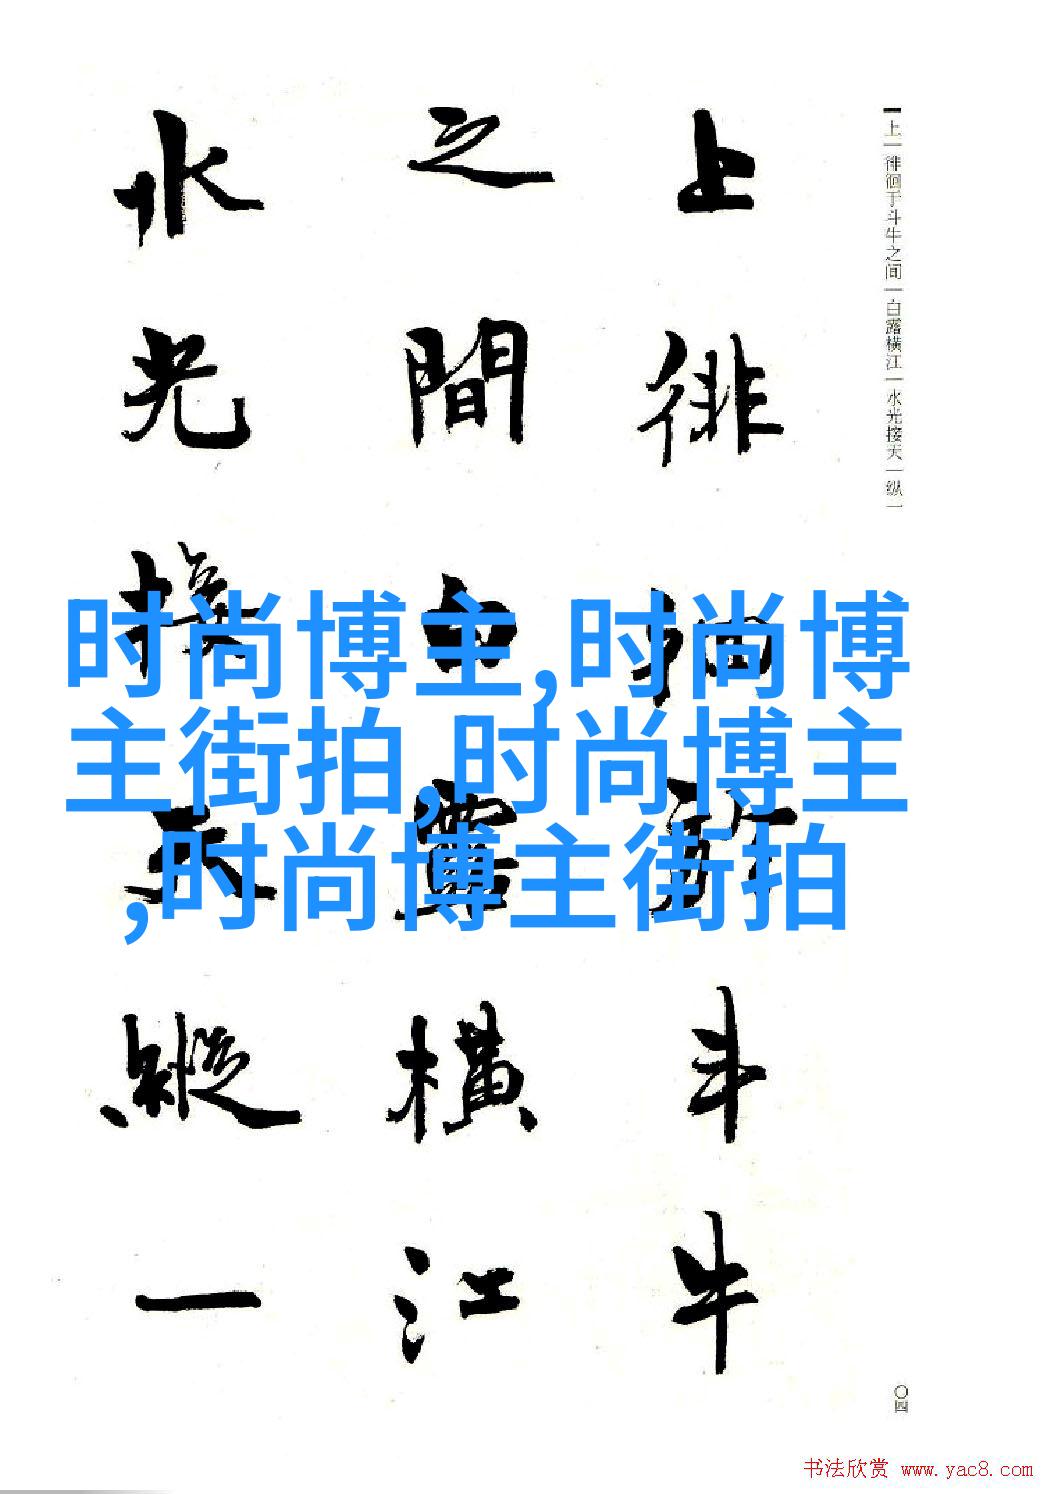 上|徘徊于斗牛之间|白露横江|水光接天|纵一
上徘徊於斗牛
之間白露橫江
水光接天縱一
时尚博主,时尚博
主街拍,时尚博主
,时尚博主街拍
〇四
书法欣赏 www.yac8.com